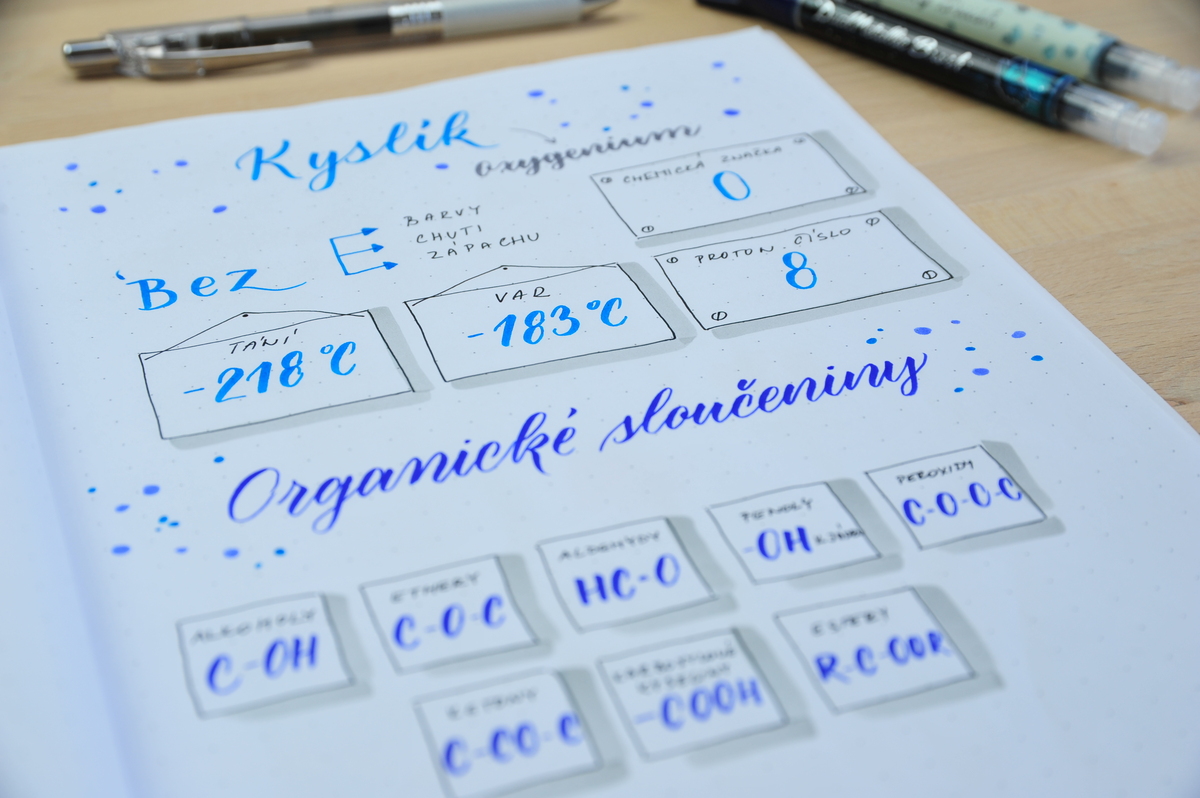 Kyslík
oxygenium
CHEMICKÁ ZNAČKA
O
Bez
BARVY
CHUTI
ZÁPACHU
PROTON. ČÍSLO
8
TÁNÍ
-218°C
VAR
-183°C
Organické sloučeniny
ALKOHOLY
C-OH
ETHERY
C-O-C
ALDEHYDY
HC-O
FENOLY
-OH
PEROXIDY
C-O-O-C
KETONY
C-CO-C
KARBOXYLOVÉ
KYSELINY
-COOH
ESTERY
R-C-OOR